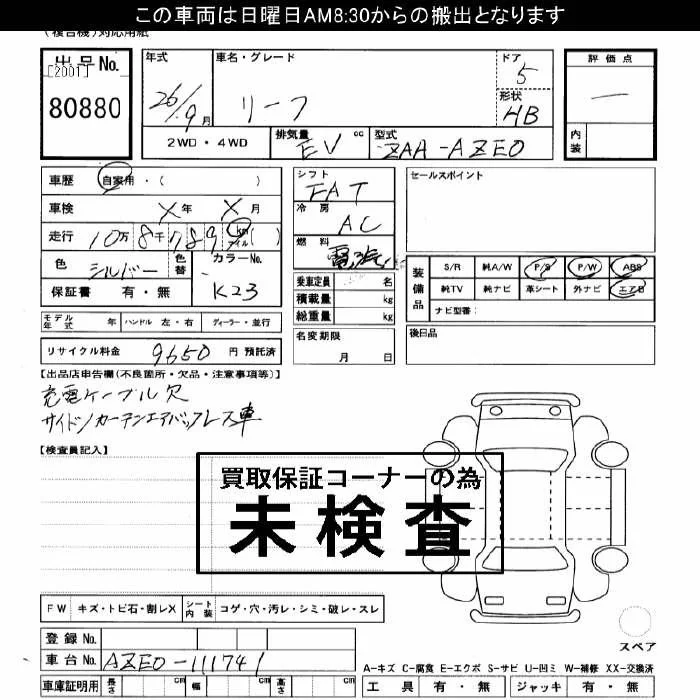 この車両は日曜日AM8:30からの搬出となります
(複合機)対応用紙
出品No.
[2001]
80880
年式
26/9月
車名・グレード
リーフ
ドア
5
形状
HB
2WD・4WD
排気量
EV cc
型式
ZAA-AZE0
評価点
一
内装
車歴 自家用・( )
車検 X年 X月
走行 10万 8千 7 8 9 km マイル ( )
色 シルバー 色替
カラーNo.
K23
保証書 有・無
シフト
FAT
冷房
AC
燃料
乗車定員 名
積載量 kg
総重量 kg
名変期限
月 日
セールスポイント
装備品
S/R 純A/W P/S P/W ABS
純TV 純ナビ 革シート 外ナビ エアB
ナビ型番:
後日品
モデル年式 年 ハンドル 左・右 ディーラー・並行
リサイクル料金 9650 円 預託済
【出品店申告欄(不良箇所・欠品・注意事項等)】
充電ケーブル欠
サイド/カーテンエアバッグレス車
【検査員記入】
買取保証コーナーの為
未検査
FW キズ・トビ石・割レX シート内装 コゲ・穴・汚レ・シミ・破レ・スレ
登録No.
車台No. AZE0-111741
車庫証明用 長さ cm 幅 cm 高さ cm
スペア
A-キズ C-腐食 E-エクボ S-サビ U-凹ミ W-補修 XX-交換済
工具 有・無 ジャッキ 有・無